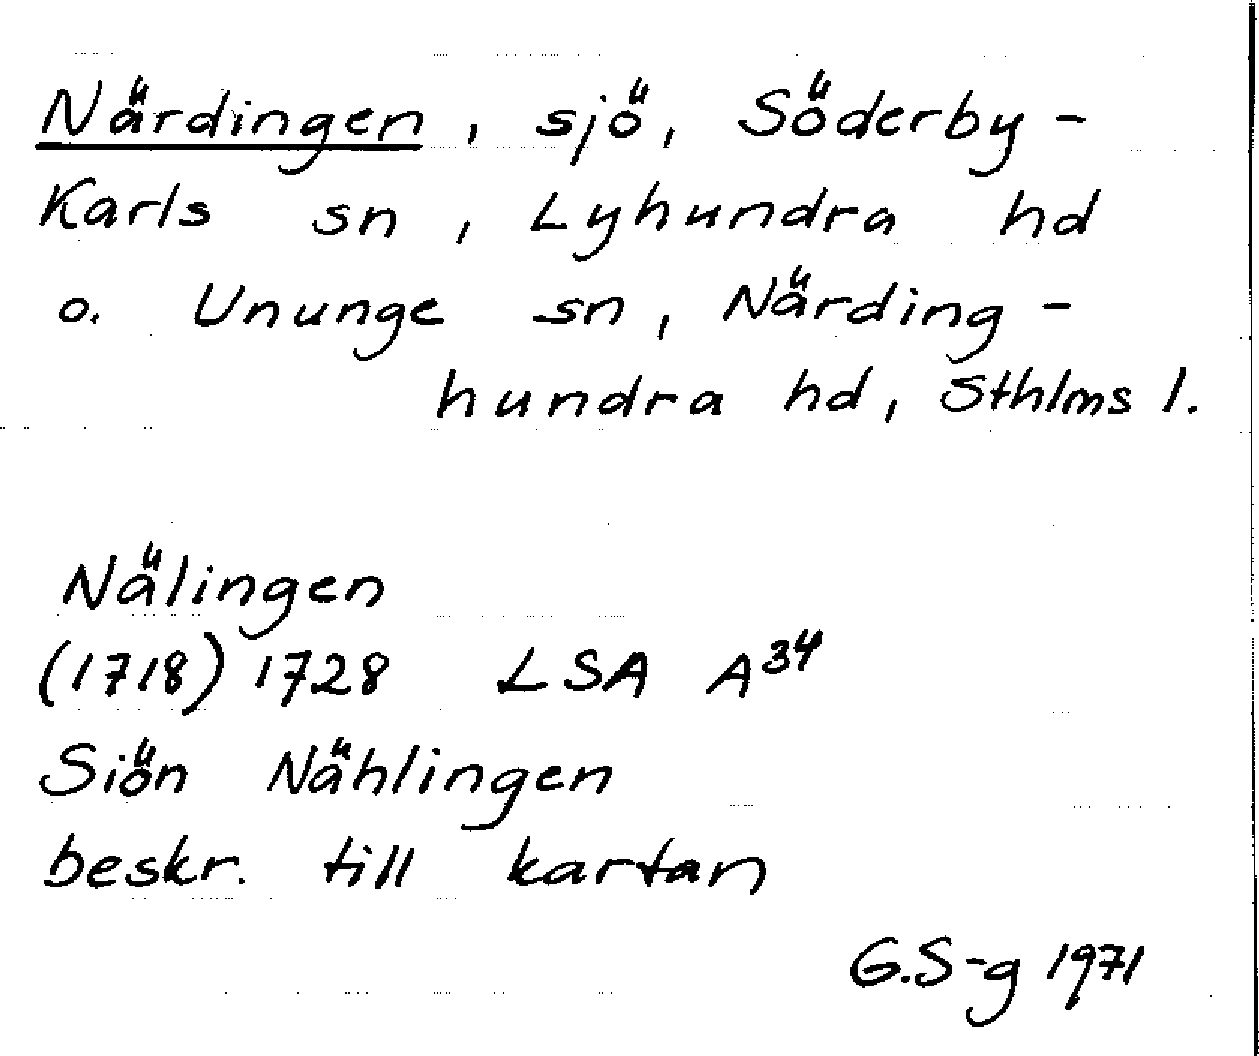 Närdingen, sjö, Söderby-
Karls sn, Lyhundra hd
o. Ununge sn, Närding-
hundra hd, Sthlms l.
Nälingen
(1718) 1728 LSA A³⁴
Siön Nählingen
beskr. till kartan
G.S-g 1971